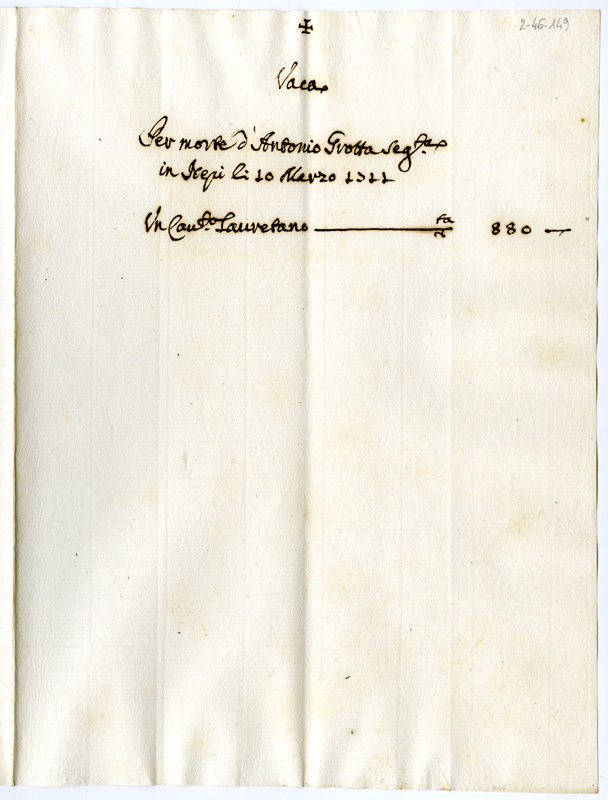 2-46-149
✠
Vaca
Per morte d'Antonio Grotta seg.ta
in Nepi li 10 Marzo 1711
Un Cau.to Lauretano 880 —